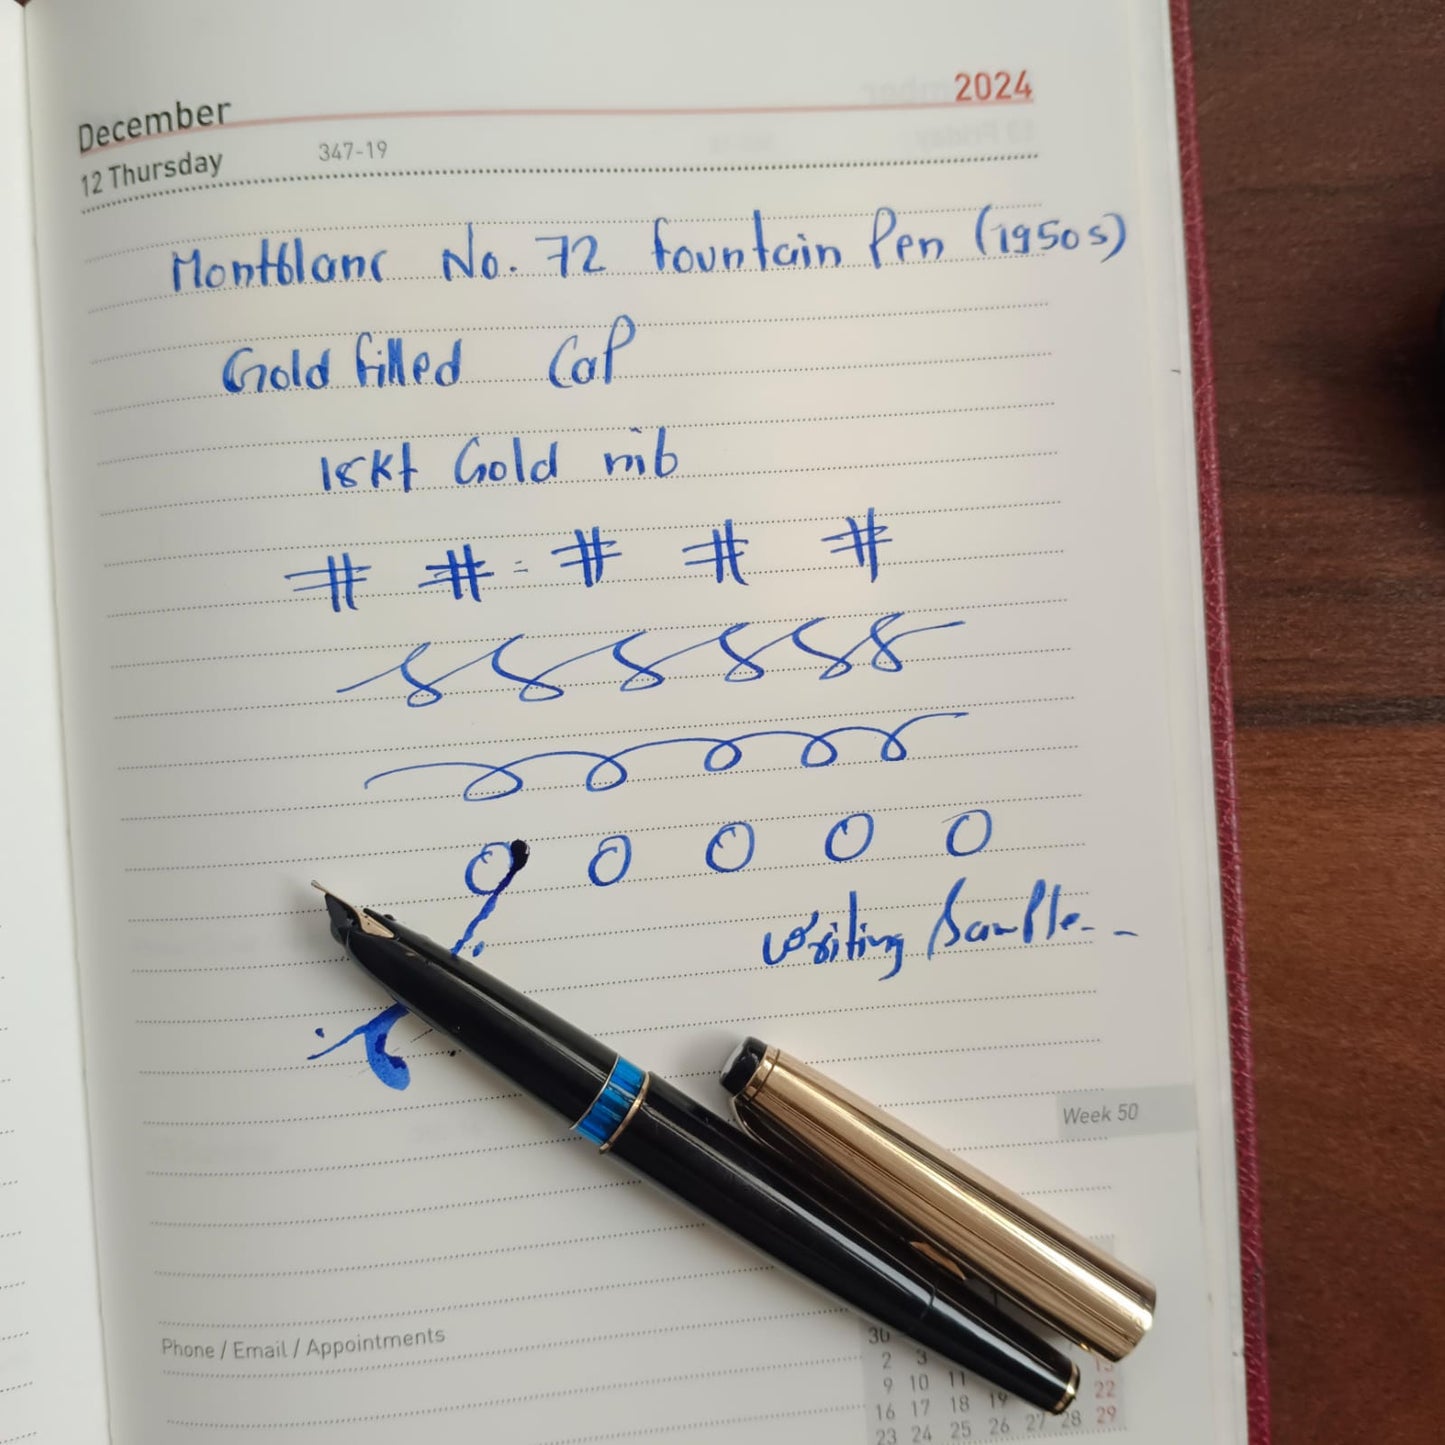 December 2024
12 Thursday 347-19
Montblanc No. 72 fountain Pen (1950s)
Gold filled Cap
18kt Gold nib
# # = # # #
8 8 8 8 8 8
O O O O O
Writing Sample - -
Week 50
Phone / Email / Appointments
30
2 3 15
9 10 11 22
16 17 18 19 29
23 24 25 26 27 28